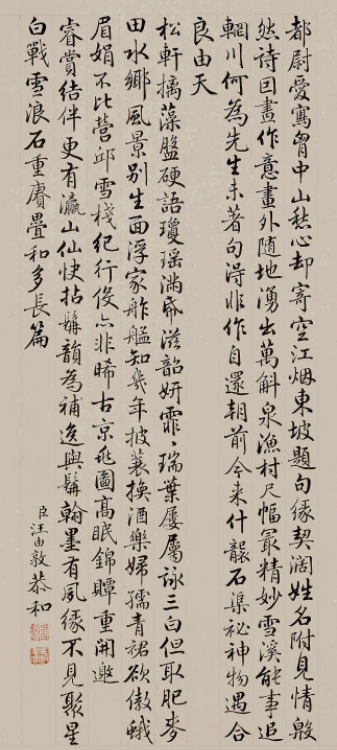 都尉愛寫胷中山愁心却寄空江烟東坡題句緣契闊姓名附見情殷
然詩曰畫作意畫外隨地湧出萬斛泉漁村尺幅最精妙雪溪能事追
輞川何為先生未著句得非作自還朝前今来什襲石渠祕神物遇合
良由天
松軒摛藻盤硬語瓊瑶滿帋滋韶妍霏〻瑞葉屢屬詠三白但取肥麥
田水鄉風景别生面浮家舴艋知幾年披蓑換酒樂婦孺青裙欲傲蛾
眉娟不比營邱雪棧紀行役亦非晞古京兆圖高眠錦贉重開邀
睿賞結伴更有瀛山仙快拈髯韻為補逸與髯翰墨有夙緣不見聚星
白戰雪浪石重賡疊和多長篇
臣汪由敦恭和